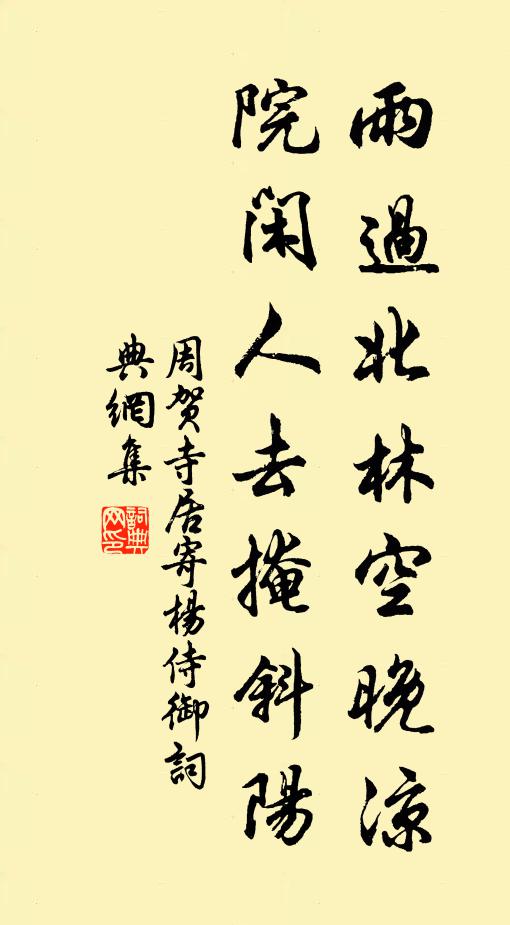 雨過北林空晚涼
院閑人去掩斜陽
周賀寺居寄楊侍御詞
典網集
詞典網印